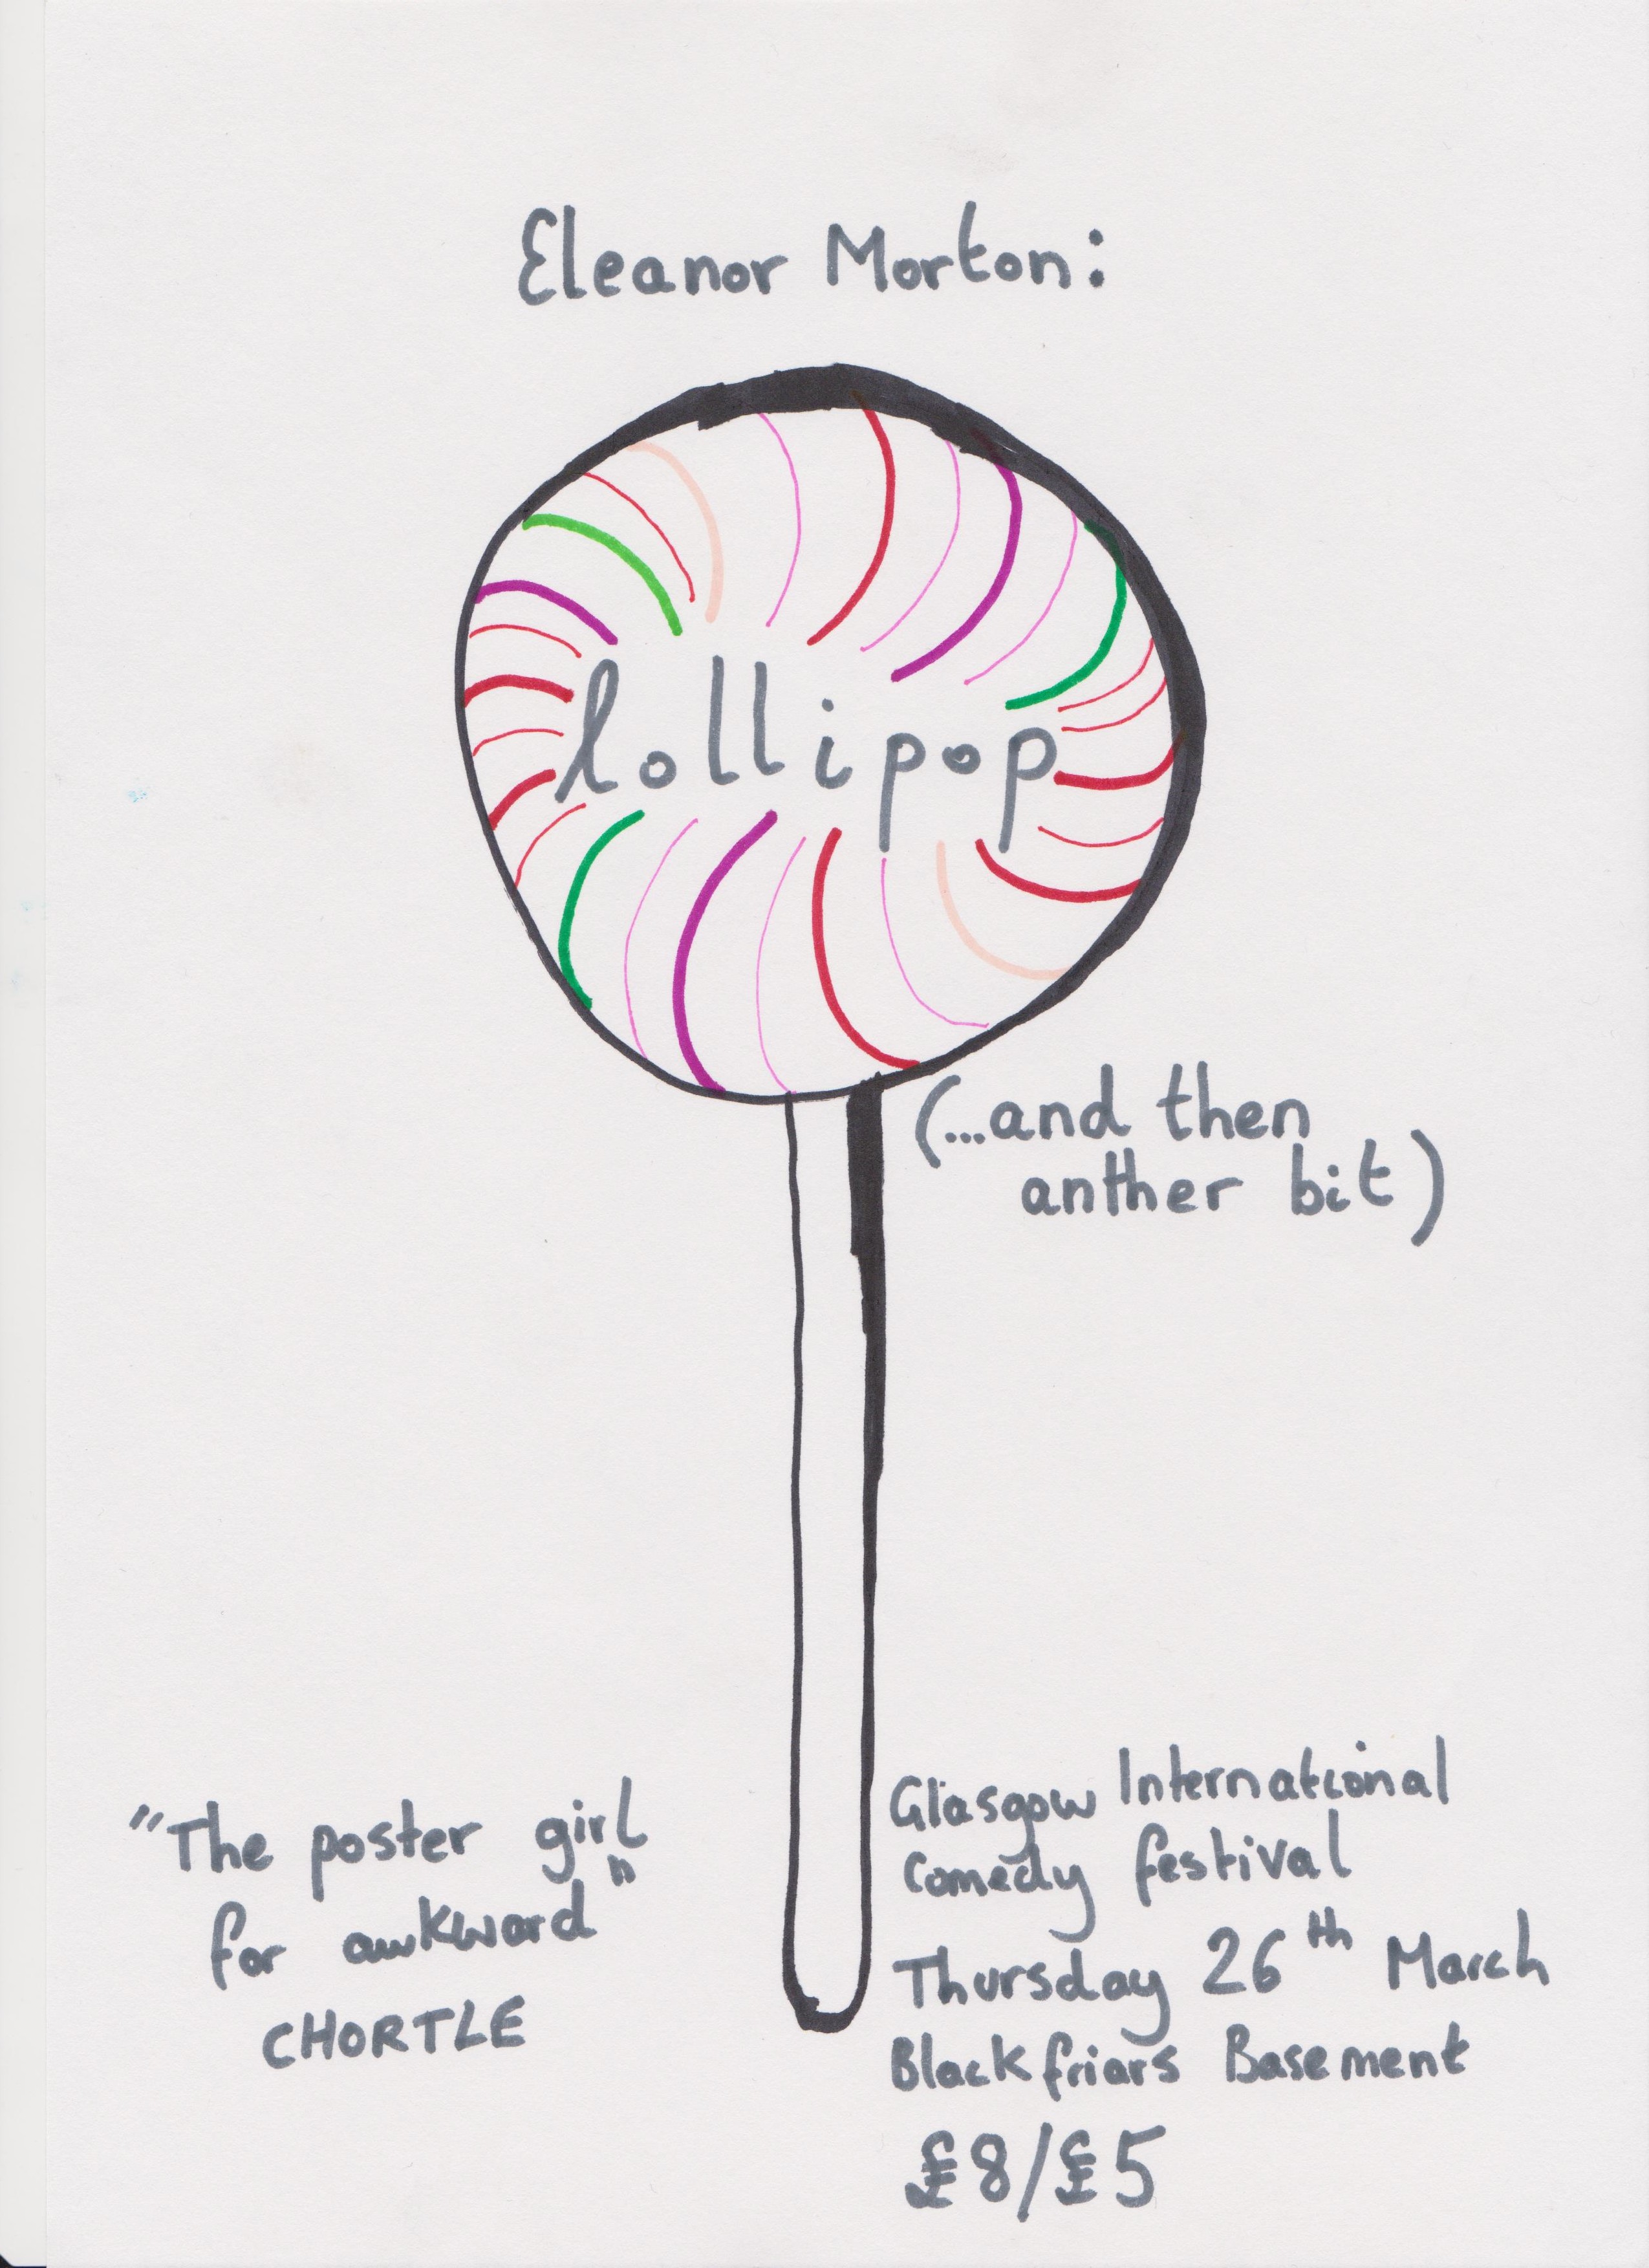 Eleanor Morton:
lollipop
(...and then
anther bit)
"The poster girl
for awkward"
CHORTLE
Glasgow International
Comedy festival
Thursday 26th March
Blackfriars Basement
£8/£5